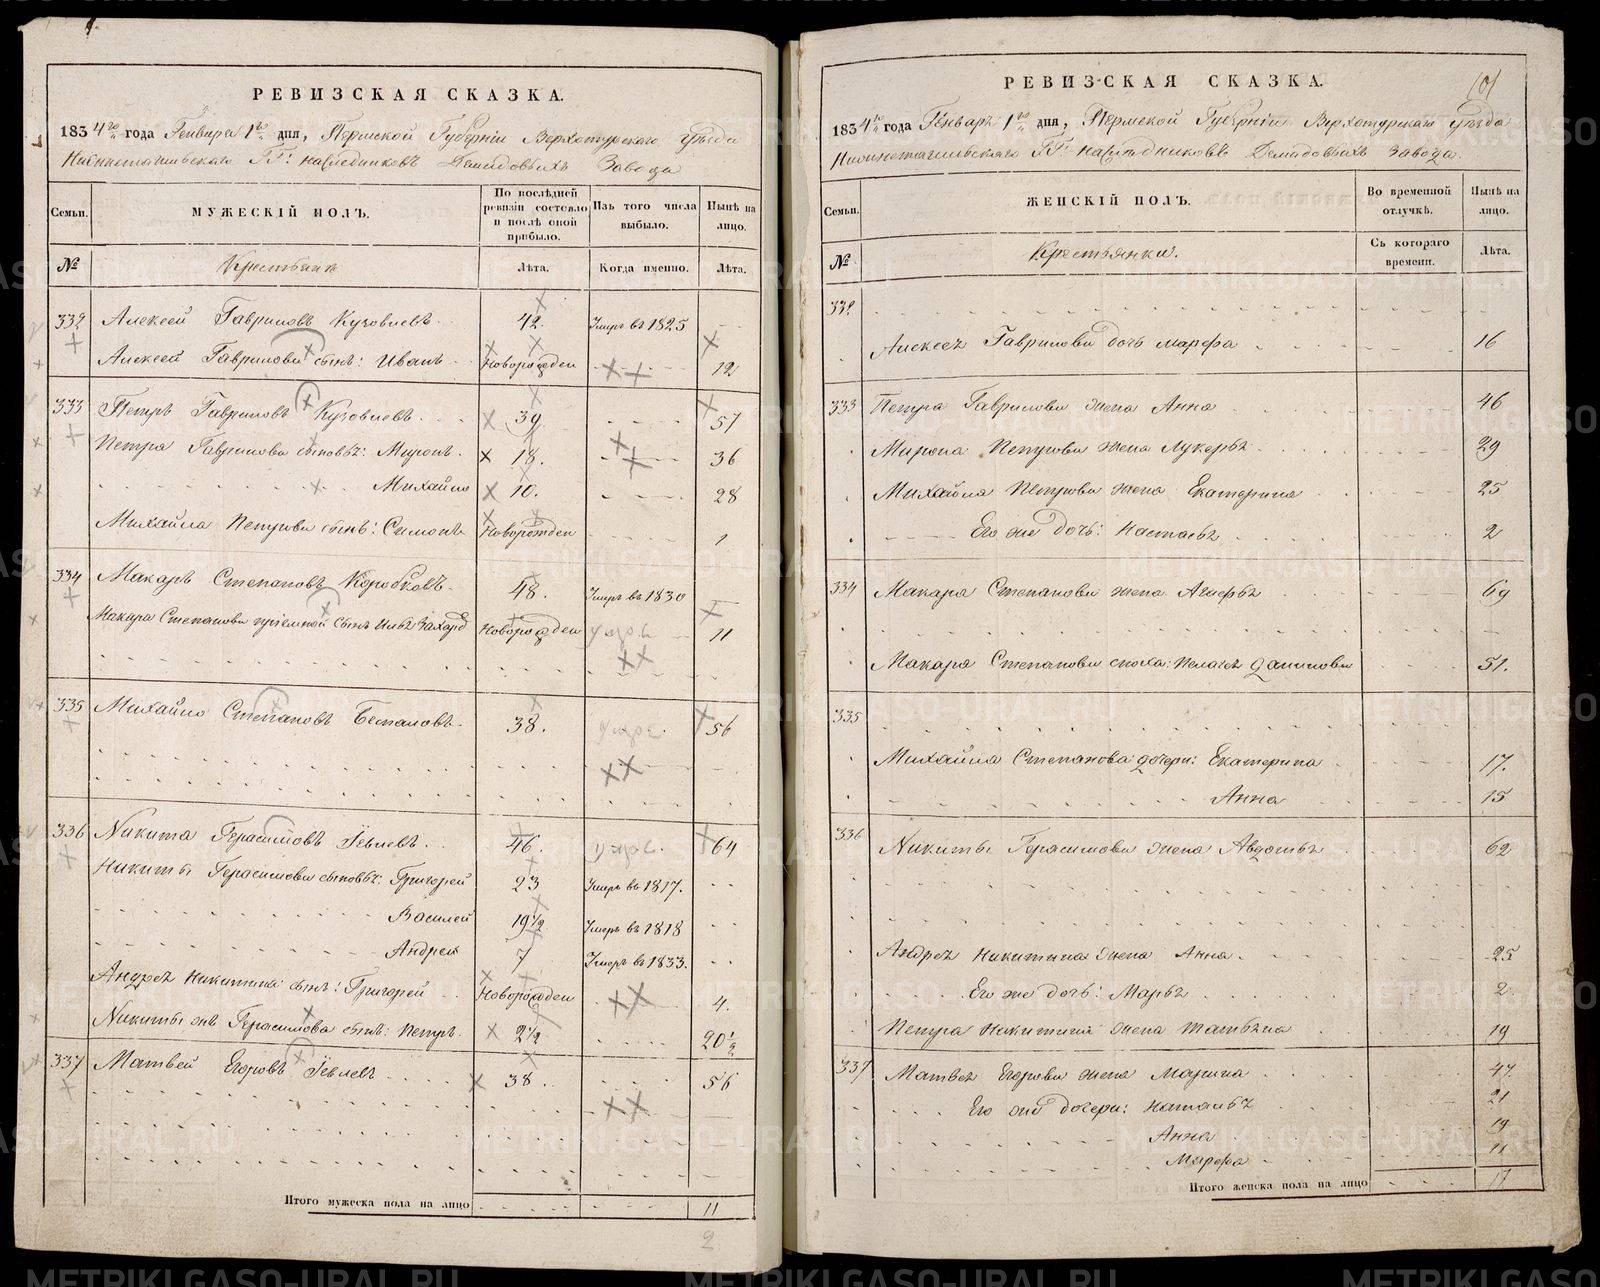 РЕВИЗСКАЯ СКАЗКА.
1834го года Генваря 1го дня, Пермской Губерніи Верхотурскаго уѣзда
Нижнетагильскаго ГГ: наслѣдниковъ Демидовыхъ Завода
Семьи. МУЖЕСКІЙ ПОЛЪ. По послѣдней ревизіи состояло и послѣ оной прибыло. Изъ того числа выбыло. Нынѣ на лицо.
№ Крестьяне Лѣта. Когда именно. Лѣта.
332 Алексей Гавриловъ 42. Умеръ въ 1825 -
Алексея Гаврилова сынъ: Иванъ Новорожден 12
333 Петръ Гавриловъ 39 57
Петра Гаврилова сыновья: Миронъ. 18. 36
Михайло 10. 28
Михайла Петрова сынъ: Симонъ Новорожден 1
334 Макаръ Степановъ Коробковъ. 48. Умеръ въ 1830 -
Макара Степанова пріемной сынъ Илья Захаров Новорожден умре 11
335 Михайло Степановъ 38. умре. 56
336 Никита Герасимовъ 46. умре. 64
Никиты Герасимова сыновья: Григорей 23 Умеръ въ 1817.
Василей 19½ Умеръ въ 1818
Андрей 7 Умеръ въ 1833.
Андрея Никитина сынъ: Григорей Новорожден 4.
Никиты Герасимова сынъ: Петръ. 2½ 20½
337 Матвей Егоровъ 38. 56
Итого мужеска пола на лицо 11
2
РЕВИЗСКАЯ СКАЗКА.
1834го года Генваря 1го дня, Пермской Губерніи Верхотурскаго уѣзда
Нижнетагильскаго ГГ: наслѣдниковъ Демидовыхъ завода.
Семьи. ЖЕНСКІЙ ПОЛЪ. Во временной отлучкѣ. Нынѣ на лицо.
№ Крестьянки. Съ котораго времени. Лѣта.
332
Алексея Гаврилова дочь Марфа 16
333 Петра Гаврилова жена Анна 46
Мирона Петрова жена Лукерья 29
Михайла Петрова жена Екатерина 25
Его же дочь: Настасья 2
334 Макара Степанова жена Агафья 69
Макара Степанова сноха: Пелагея Данилова 51.
335
Михайла Степанова дочери: Екатерина 17.
Анна 15
336 Никиты Герасимова жена Авдотья 62
Андрея Никитина жена Анна. 25
Его же дочь: Марья 2
Петра Никитина жена Татьяна 19
337 Матвея Егорова жена Марина 47.
Его же дочери: Наталья 21
Анна 19
Марфа 11
Итого женска пола на лицо 17